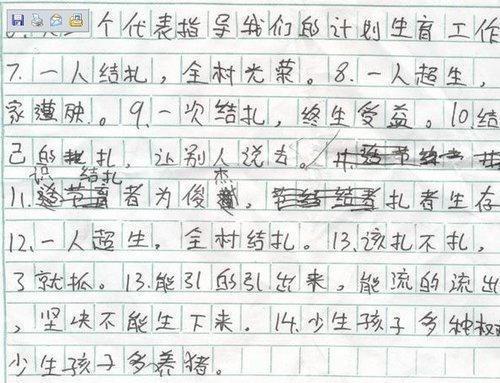 个代表指导我们的计划生育工作
7.一人结扎，全村光荣。8.一人超生，
家遭殃。9.一次结扎，终生受益。10.结
己的扎，让别人说去。
11.识结扎者为俊杰，扎者生存
12.一人超生，全村结扎。13.该扎不扎，
了就抓。13.能引的引出来，能流的流出
，坚决不能生下来。14.少生孩子多种
少生孩子多养猪。